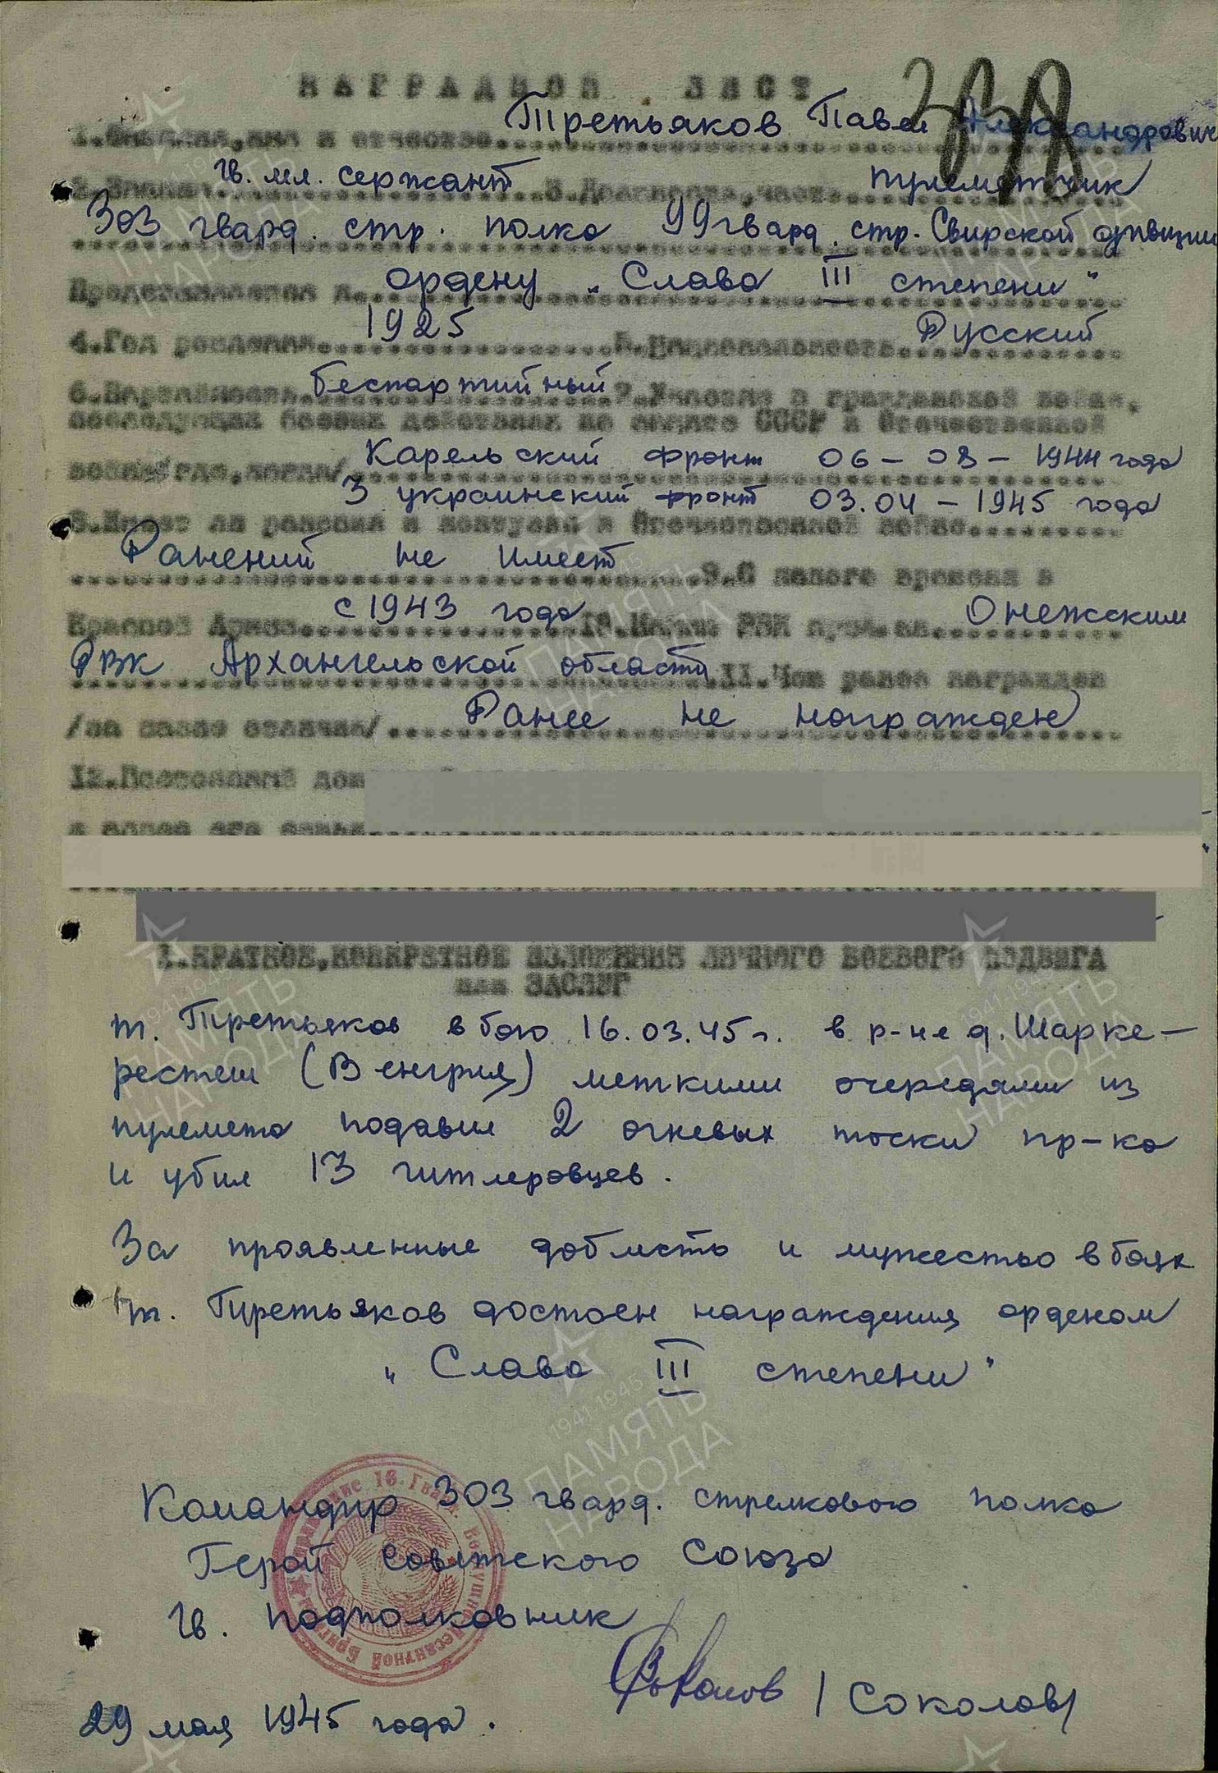 НАГРАДНОЙ ЛИСТ
338
1.Фамилия,имя и отчество Третьяков Павел Александрович
2.Звание гв. мл. сержант 3.Должность,часть пулеметчик
303 гвард. стр. полка 99 гвард. стр. Свирской дивизии
Представляется к ордену „Слава III степени"
4.Год рождения 1925 5.Национальность Русский
6.Партийность беспартийный 7.Участие в гражданской войне,
последующих боевых действиях по защите СССР и Отечественной
войне/где,когда/ Карельский фронт 06-08-1944 года
3 украинский фронт 03.04-1945 года
8.Имеет ли ранения и контузии в Отечественной войне
Ранений не имеет 9.С какого времени в
Красной Армии с 1943 года 10.Каким РВК призван Онежским
РВК Архангельской области 11.Чем ранее награжден
/за какие отличия/ Ранее не награжден
12.Постоянный дом
и адрес его семьи
1.КРАТКОЕ,КОНКРЕТНОЕ ИЗЛОЖЕНИЕ ЛИЧНОГО БОЕВОГО ПОДВИГА
или ЗАСЛУГ
т. Третьяков в бою 16.03.45г. в р-не д. Шарке-
рестеш (Венгрия) меткими очередями из
пулемета подавил 2 огневых точки пр-ка
и убил 13 гитлеровцев.
За проявленные доблесть и мужество в боях
т. Третьяков достоен награждения орденом
„Слава III степени"
Командир 303 гвард. стрелкового полка
Герой советского Союза
гв. подполковник
Соколов /Соколов/
29 мая 1945 года.
1941-1945
ПАМЯТЬ
НАРОДА